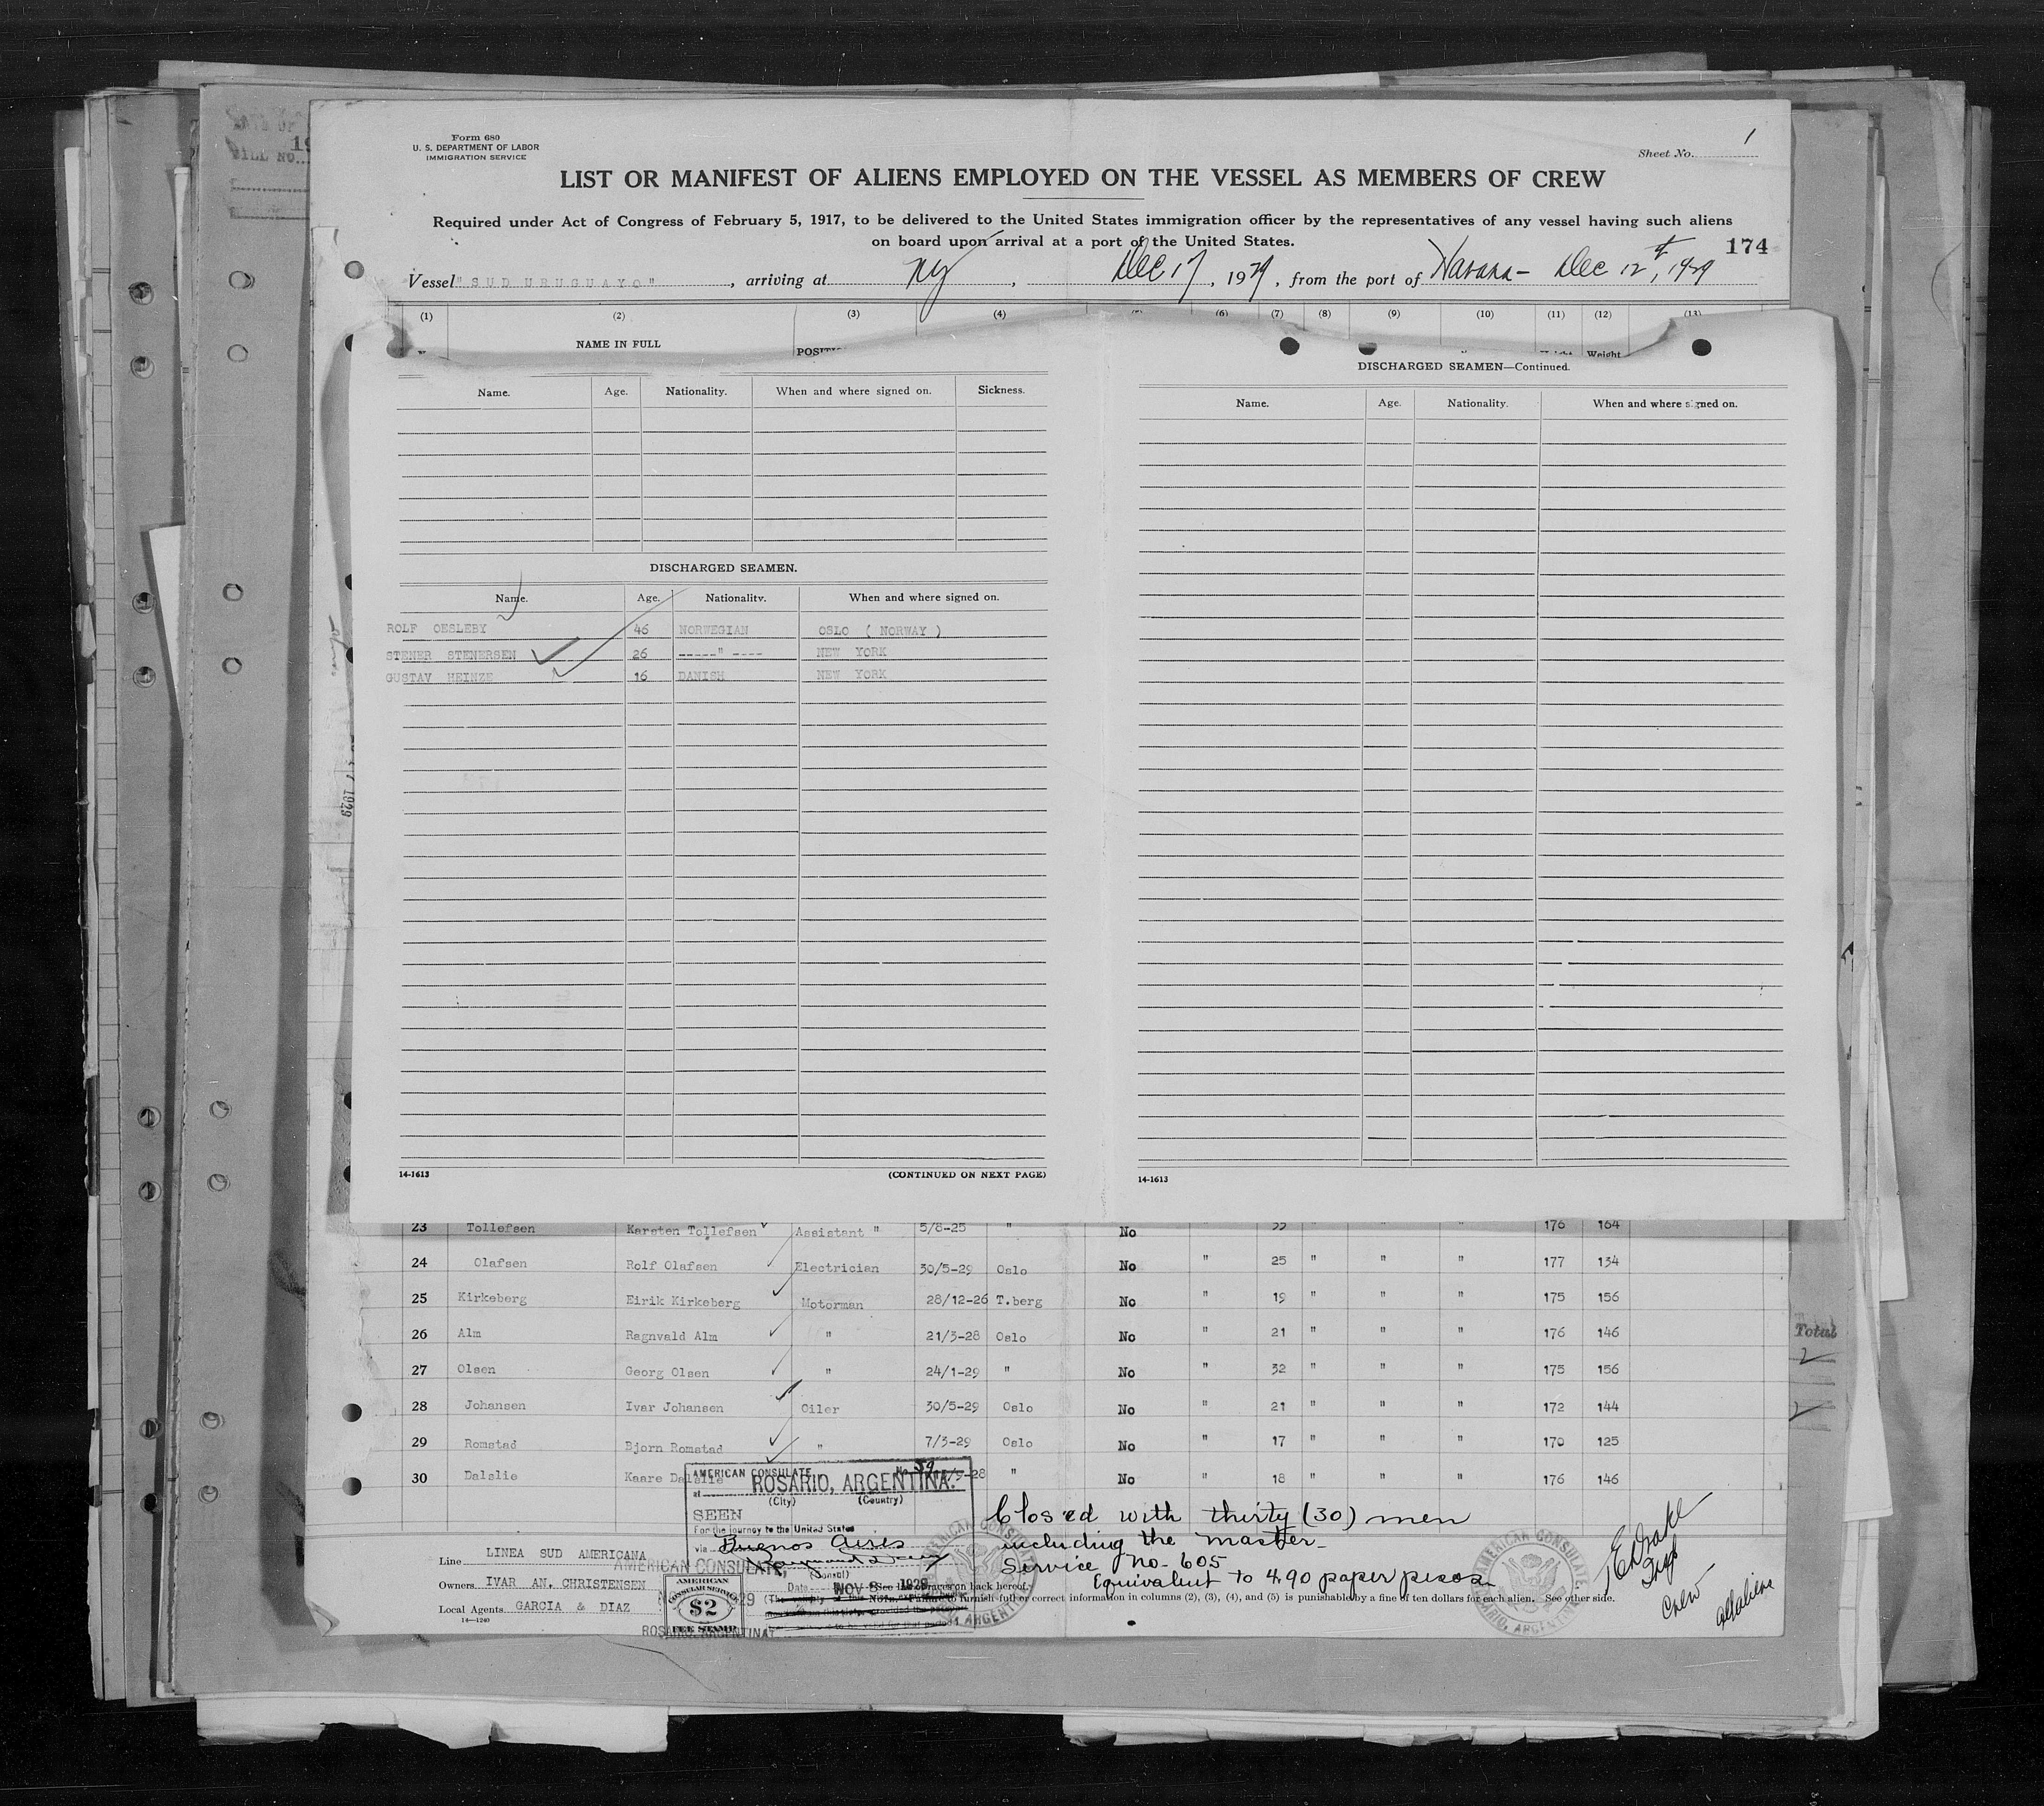 Form 680
U. S. DEPARTMENT OF LABOR
IMMIGRATION SERVICE
Sheet No. 1
LIST OR MANIFEST OF ALIENS EMPLOYED ON THE VESSEL AS MEMBERS OF CREW
Required under Act of Congress of February 5, 1917, to be delivered to the United States immigration officer by the representatives of any vessel having such aliens
on board upon arrival at a port of the United States.
174
Vessel "SUD URUGUAYO", arriving at NY, Dec 17, 1929, from the port of Havana - Dec 12th, 1929
(1) (2) (3) (4) (6) (7) (8) (9) (10) (11) (12) (13)
NAME IN FULL
Weight
Name. Age. Nationality. When and where signed on. Sickness.
DISCHARGED SEAMEN.
Name. Age. Nationality. When and where signed on.
ROLF OESLEBY 46 NORWEGIAN OSLO ( NORWAY )
STENER STENERSEN 26 -----" ---- NEW YORK
GUSTAV HEINZE 16 DANISH NEW YORK
14-1613
(CONTINUED ON NEXT PAGE)
DISCHARGED SEAMEN—Continued.
Name. Age. Nationality. When and where signed on.
14-1613
23 Tollefsen Karsten Tollefsen Assistant " 5/8-25 " No " " " 176 164
24 Olafsen Rolf Olafsen Electrician 30/5-29 Oslo No " 25 " " " 177 134
25 Kirkeberg Eirik Kirkeberg Motorman 28/12-26 T.berg No " 19 " " " 175 156
26 Alm Ragnvald Alm " 21/3-28 Oslo No " 21 " " " 176 146
27 Olsen Georg Olsen " 24/1-29 " No " 32 " " " 175 156
28 Johansen Ivar Johansen Oiler 30/5-29 Oslo No " 21 " " " 172 144
29 Romstad Bjorn Romstad " 7/3-29 Oslo No " 17 " " " 170 125
30 Dalslie Kaare Dalslie " No " 18 " " " 176 146
Total
AMERICAN CONSULATE No. 59
at ROSARIO, ARGENTINA.
(City) (Country)
SEEN
For the journey to the United States
via Buenos Aires
(Consul)
Date NOV 8 1929
AMERICAN CONSULATE
AMERICAN
CONSULAR SERVICE
$2
FEE STAMP
ROSARIO, ARGENTINA
Closed with thirty (30) men
including the master.
Service no. 605
Equivalent to 4.90 paper pesos
Line LINEA SUD AMERICANA
Owners IVAR AN. CHRISTENSEN
Local Agents GARCIA & DIAZ
14—1240
to furnish full or correct information in columns (2), (3), (4), and (5) is punishable by a fine of ten dollars for each alien. See other side.
AMERICAN CONSULATE
ROSARIO, ARGENTINA
Crew